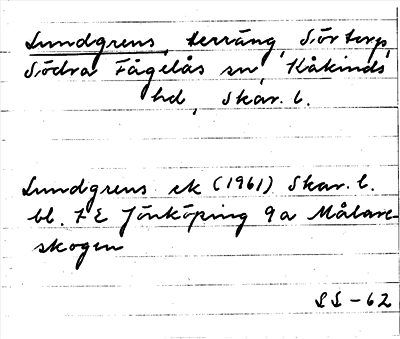 Lundgrens, terräng, Sörterp,
Södra Fågelås sn, Kåkinds
hd, Skar. l.
Lundgrens ek (1961) Skar. l.
bl. 7 E Jönköping 9a Målare-
skogen
SS-62